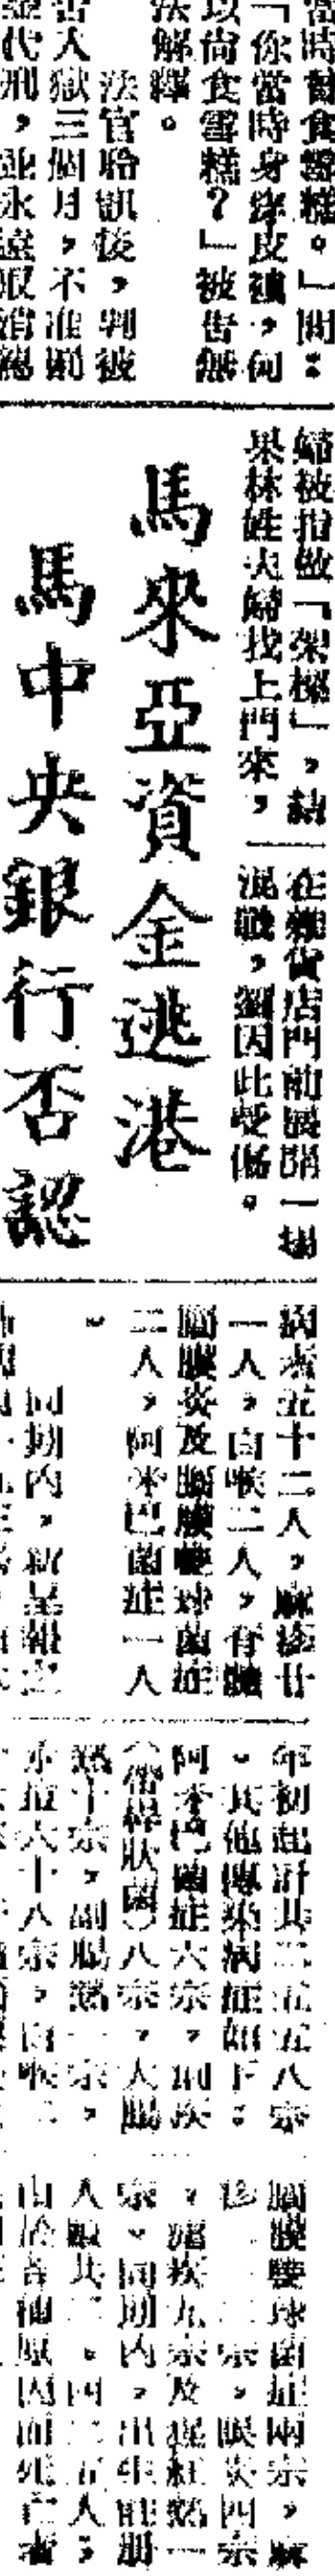 當時曾食雪糕。」問：
「你當時身穿皮褸，何
以尚食雪糕？」被告無
法解釋。
法官聆訊後，判被
告入獄三個月，不准罰
金代刑，並永遠取消
婦被指做「架樑」，結
果林姓夫婦找上門來，
在雜貨店門前展開一場
混戰，劉因此受傷。
馬來亞資金逃港
馬中央銀行否認
病者五十二人，麻疹廿
一人，白喉二人，脊髓
腦膜炎及腦膜雙球菌症
二人，阿米巴菌症一人
。
同期內，新呈報之
年初起計共三五五八宗
。其他傳染病症如下：
阿米巴菌症六宗，桿狀
（桿狀菌）八宗，大腸
熱十宗，副腸熱一宗，
水痘六十八宗，白喉二
腦膜雙球菌症兩宗，麻
疹二宗，眼炎四宗
，瘧疾九宗及猩紅熱一
宗。同期內，出生註冊
人數共二，四二五人；
由於各種原因而死亡者